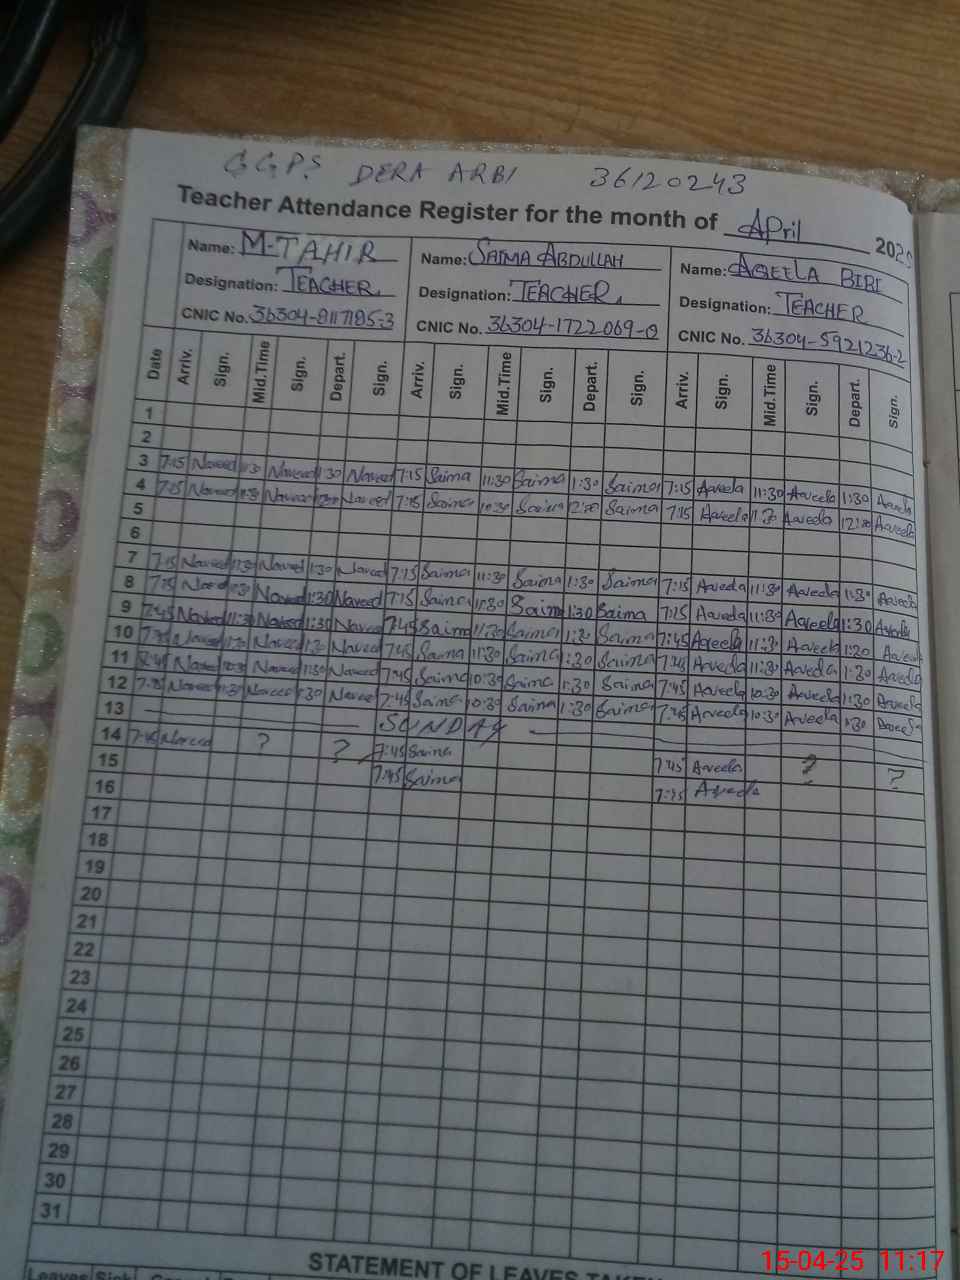 G.G.P.S DERA ARBI 36120243
Teacher Attendance Register for the month of April 202
Name: M-TAHIR Name: SAIMA ABDULLAH Name: AQEELA BIBI
Designation: TEACHER Designation: TEACHER Designation: TEACHER
CNIC No. 36304-8117185-3 CNIC No. 36304-1722069-0 CNIC No. 36304-5921236-2
Date Arriv. Sign. Mid.Time Sign. Depart. Sign. Arriv. Sign. Mid.Time Sign. Depart. Sign. Arriv. Sign. Mid.Time Sign. Depart. Sign.
1
2
3 7:15 Naveed 11:30 Naveed 1:30 Naveed 7:15 Saima 11:30 Saima 1:30 Saima 7:15 Aqeela 11:30 Aqeela 1:30 Aqeela
4 7:15 Naveed Naveed Naveed 7:15 Saima 10:30 Saima Saima 7:15 Aqeela Aqeela Aqeela
5
6
7 7:15 Naveed 11:30 Naveed 1:30 Naveed 7:15 Saima 11:30 Saima 1:30 Saima 7:15 Aqeela 11:30 Aqeela Aqeela
8 7:15 Naveed 11:30 Naveed 1:30 Naveed 7:15 Saima 11:30 Saima 1:30 Saima 7:15 Aqeela 11:30 Aqeela 1:30 Aqeela
9 7:45 Naveed 11:30 Naveed 1:30 Naveed 7:45 Saima 11:30 Saima Saima 7:45 Aqeela 11:30 Aqeela Aqeela
10 Naveed Naveed 1:30 Naveed 7:45 Saima 11:30 Saima 1:30 Saima 7:45 Aqeela 11:30 Aqeela 1:30 Aqeela
11 Naveed 10:30 Naveed 1:30 Naveed 7:45 Saima 10:30 Saima 1:30 Saima 7:45 Aqeela 10:30 Aqeela 1:30 Aqeela
12 Naveed 11:30 Naveed 1:30 Naveed 7:45 Saima 10:30 Saima 1:30 Saima 7:45 Aqeela 10:30 Aqeela 1:30 Aqeela
13 SUNDAY
14 7:45 Naveed ? ? 7:45 Saima 7:45 Aqeela ? ?
15 7:45 Saima 7:45 Aqeela
16
17
18
19
20
21
22
23
24
25
26
27
28
29
30
31
STATEMENT OF LEAVES
Leaves
15-04-25 11:17